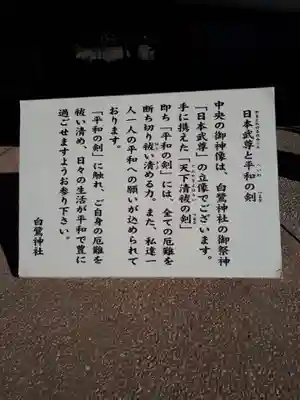 日本武尊と平和の剣
中央の御神像は、白鷺神社の御祭神
「日本武尊」の立像でございます。
手に携えた「天下清祓の剣」
即ち「平和の剣」には、全ての厄難を
断ち切り祓い清める力、また、私達一
人一人の平和への願いが込められて
おります。
「平和の剣」に触れ、ご自身の厄難を
祓い清め、日々の生活が平和で豊に
過ごせますようお参り下さい。
白鷺神社